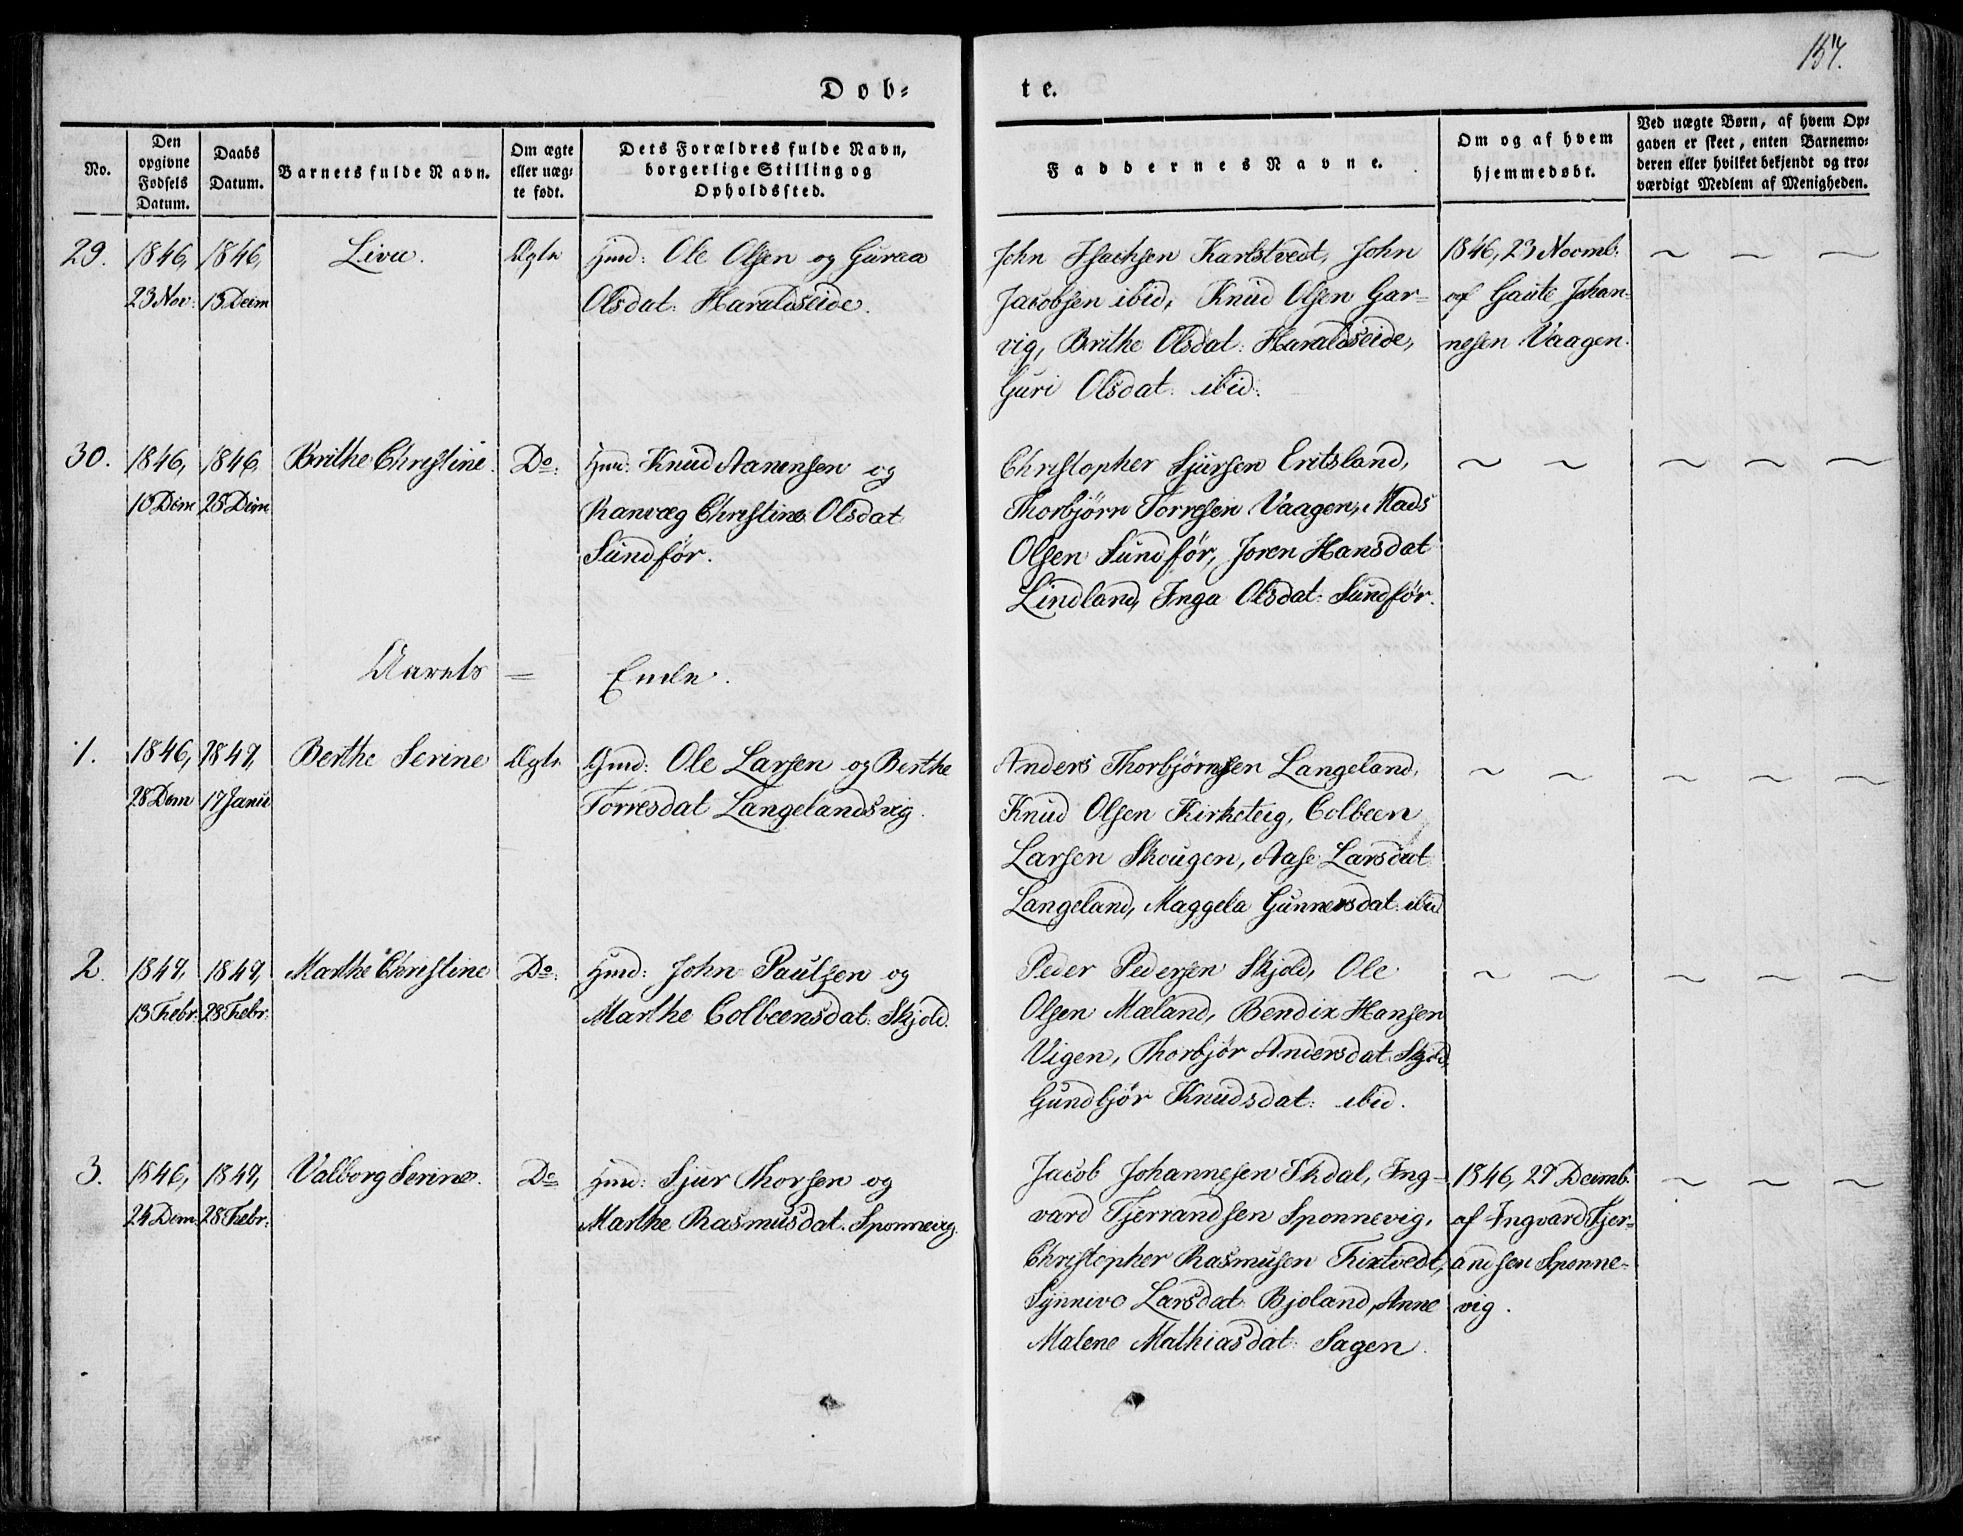 157.
Døb-
te.
No.
Den opgivne Fødsels Datum.
Daabs Datum.
Barnets fulde Navn.
Om ægte eller uægte født.
Dets Forældres fulde Navn, borgerlige Stilling og Opholdssted.
Faddernes Navne.
Om og af hvem hjemmedøbt.
Ved uægte Børn, af hvem Opgaven er skeet, enten Barnemoderen eller hvilket bekjendt og troværdigt Medlem af Menigheden.
29. 1846, 1846, Liva. Ægte Gmd: Ole Olsen og Guraa
23 Nov: 13 Decm Olsdat: Haraldseide.
John Isachsen Karlstvedt, John
Jacobsen ibid, Knud Olsen Gar-
vig, Brithe Olsdat: Haraldseide,
Guri Olsdat: ibid:
1846, 23 Novmb.
af Gaute Johan-
nesen Vaagen.
30. 1846, 1846, Brithe Christine. Do. Gmd: Knud Aanensen og
10 Dcm 28 Dcm Ranvæg Christine Olsdat
Sundfør.
Christopher Sjursen Eritsland,
Thorbjørn Torresen Vaagen, Mads
Olsen Sundfør, Joren Hansdat
Lindland, Inga Olsdat: Sundfør.
Aarets = Ende.
1. 1846, 1847, Berthe Serine Ægte Gmd: Ole Larsen og Berthe
28 Dcm 17 Janu Torresdat Langelandsvig.
Anders Thorbjørnsen Langeland,
Knud Olsen Kirketeig, Colbeen
Larsen Skougen, Aase Larsdat
Langeland, Maggela Gunnersdat: ibid
2. 1847, 1847, Marthe Christine Do. Gmd: John Paulsen og
13 Febr: 28 Febr: Marthe Colbeensdat: Skjold.
Peder Pedersen Skjold, Ole
Olsen Mæland, Bendix Hansen
Vigen, Thorbjør Andersdat Skjold,
Gundbjør Knudsdat: ibid.
3. 1846, 1847, Valborg Serine. Do Gmd: Sjur Thorsen og
24 Dcm: 28 Febr: Marthe Rasmusdat: Sponnevig.
Jacob Johannesen Skdal, Ing-
vard Tjerrandsen Sponnevig,
Christopher Rasmusen Tixtvedt,
Synnive Larsdat: Bjoland, Anne
Malene Mathiasdat: Sagen.
1846, 27 Decmb.
af Ingvard Tjer-
andsen Sponne-
vig.